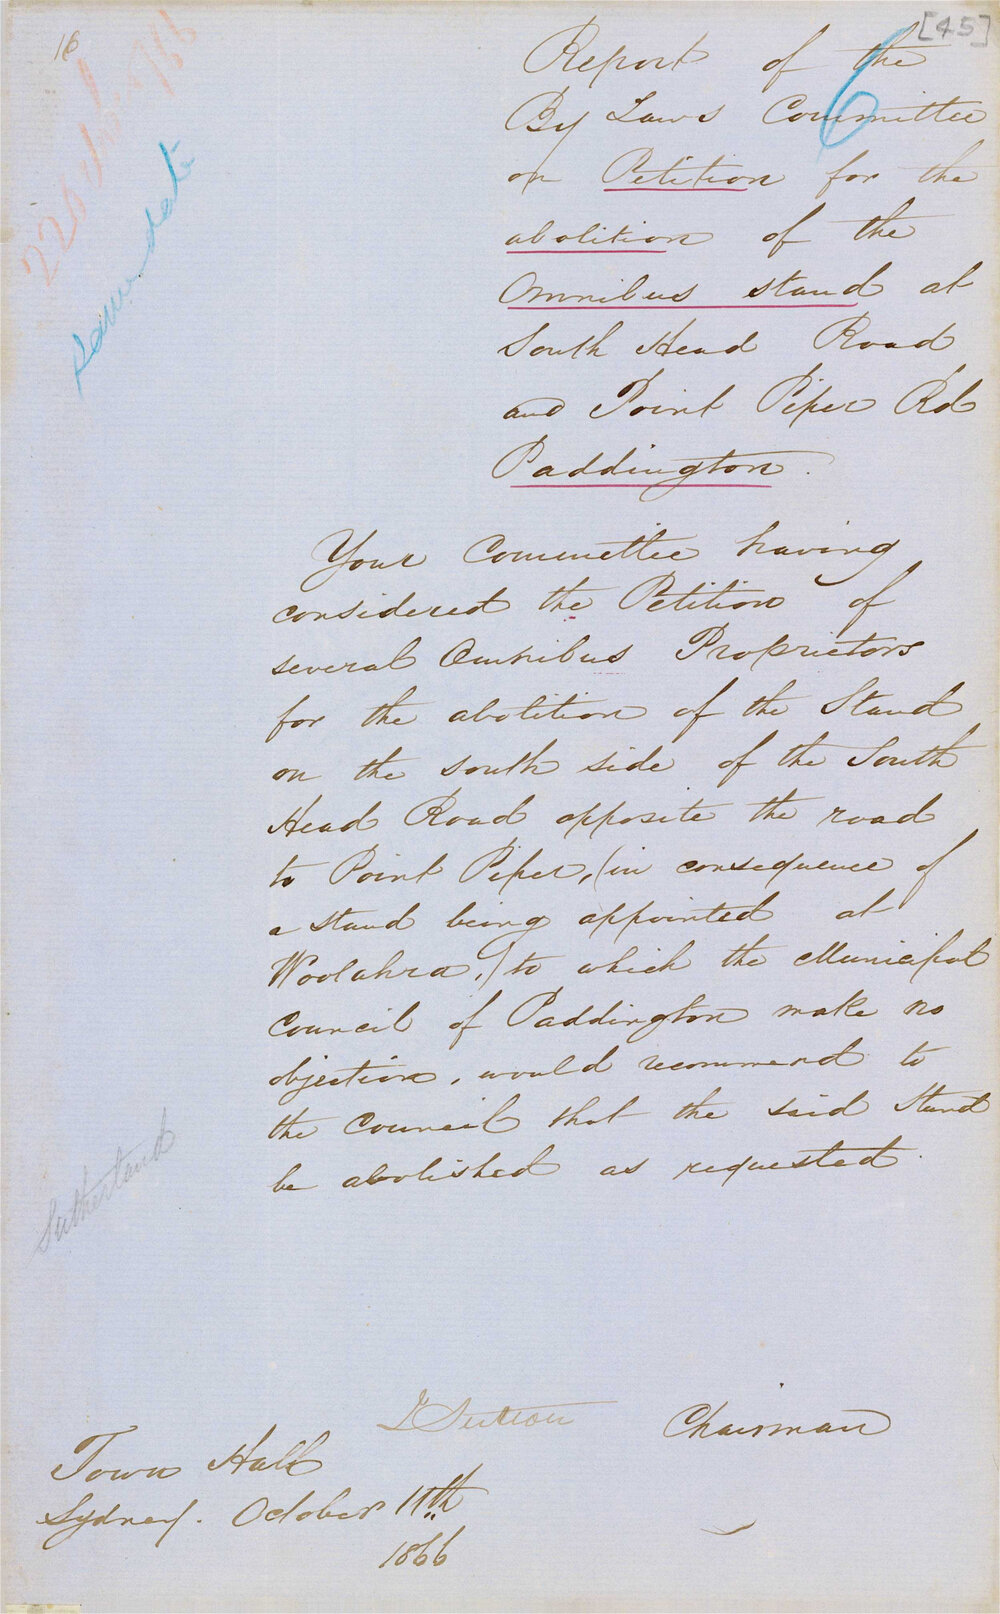 16
[45]
6
Report of the
By Laws Committee
on Petition for the
abolition of the
Omnibus stand at
South Head Road
and Point Piper Rd
Paddington.
Your Committee having
considered the Petition of
several Omnibus Proprietors
for the abolition of the Stand
on the south side of the South
Head Road opposite the road
to Point Piper, (in consequence of
a stand being appointed at
Woolahra,) to which the Municipal
Council of Paddington make no
objection, would recommend to
the Council that the said Stand
be abolished as requested.
Sutherland
Sutton
Chairman
Town Hall
Sydney. October 11th
1866